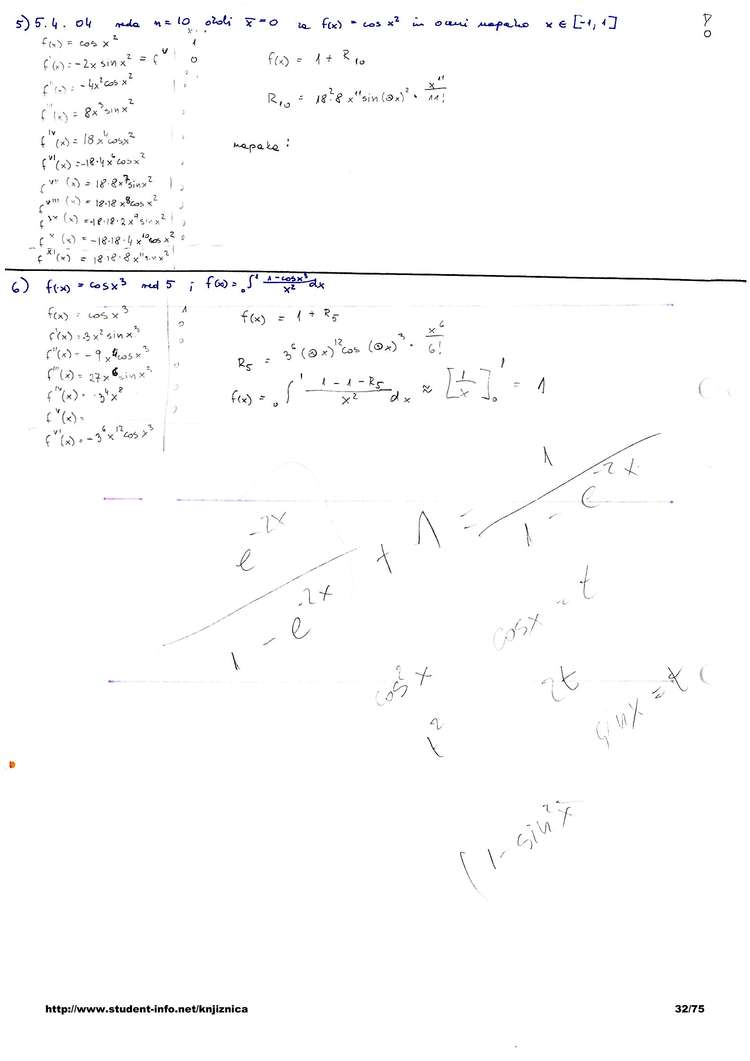 5) 5.4.04 reda n=10 okoli x̅=0 za f(x) = cos x² in oceni napako x ∈ [-1, 1]
f(x) = cos x² 1
f'(x) = -2x sin x² = f^V 0
f''(x) = -4x² cos x²
f'''(x) = 8x³ sin x²
f^IV(x) = 18x⁴ cos x²
f^VI(x) = -18·4x⁶ cos x²
f^VII(x) = 18·8x⁷ sin x²
f^VIII(x) = 18·18x⁸ cos x²
f^IX(x) = -18·18·2x⁹ sin x²
f^X(x) = -18·18·4x¹⁰ cos x²
f^XI(x) = 18·18·8x¹¹ sin x²
f(x) = 1 + R₁₀
R₁₀ = 18²·8 x¹¹ sin(Θx)² · x¹¹/11!
napaka:
6) f(x) = cos x³ red 5 ; f(x) = ₀∫¹ (1-cos x³)/x² dx
f(x) = cos x³ 1
f'(x) = 3x² sin x³ 0
f''(x) = -9x⁴ cos x³ 0
f'''(x) = 27x⁶ sin x³
f^IV(x) = 3⁴x⁸
f^V(x) =
f^VI(x) = -3⁶x¹² cos x³
f(x) = 1 + R₅
R₅ = 3⁶(Θx)¹² cos(Θx)³ · x⁶/6!
f(x) = ₀∫¹ (1-1-R₅)/x² dx ≈ [1/x]₀¹ = 1
e^(-2x)/(1 - e^(-2x)) + 1 = 1/(1 - e^(-2x))
cosx = t
cos²x 2t sinx = t
t²
(1 - sin²x
http://www.student-info.net/knjiznica 32/75